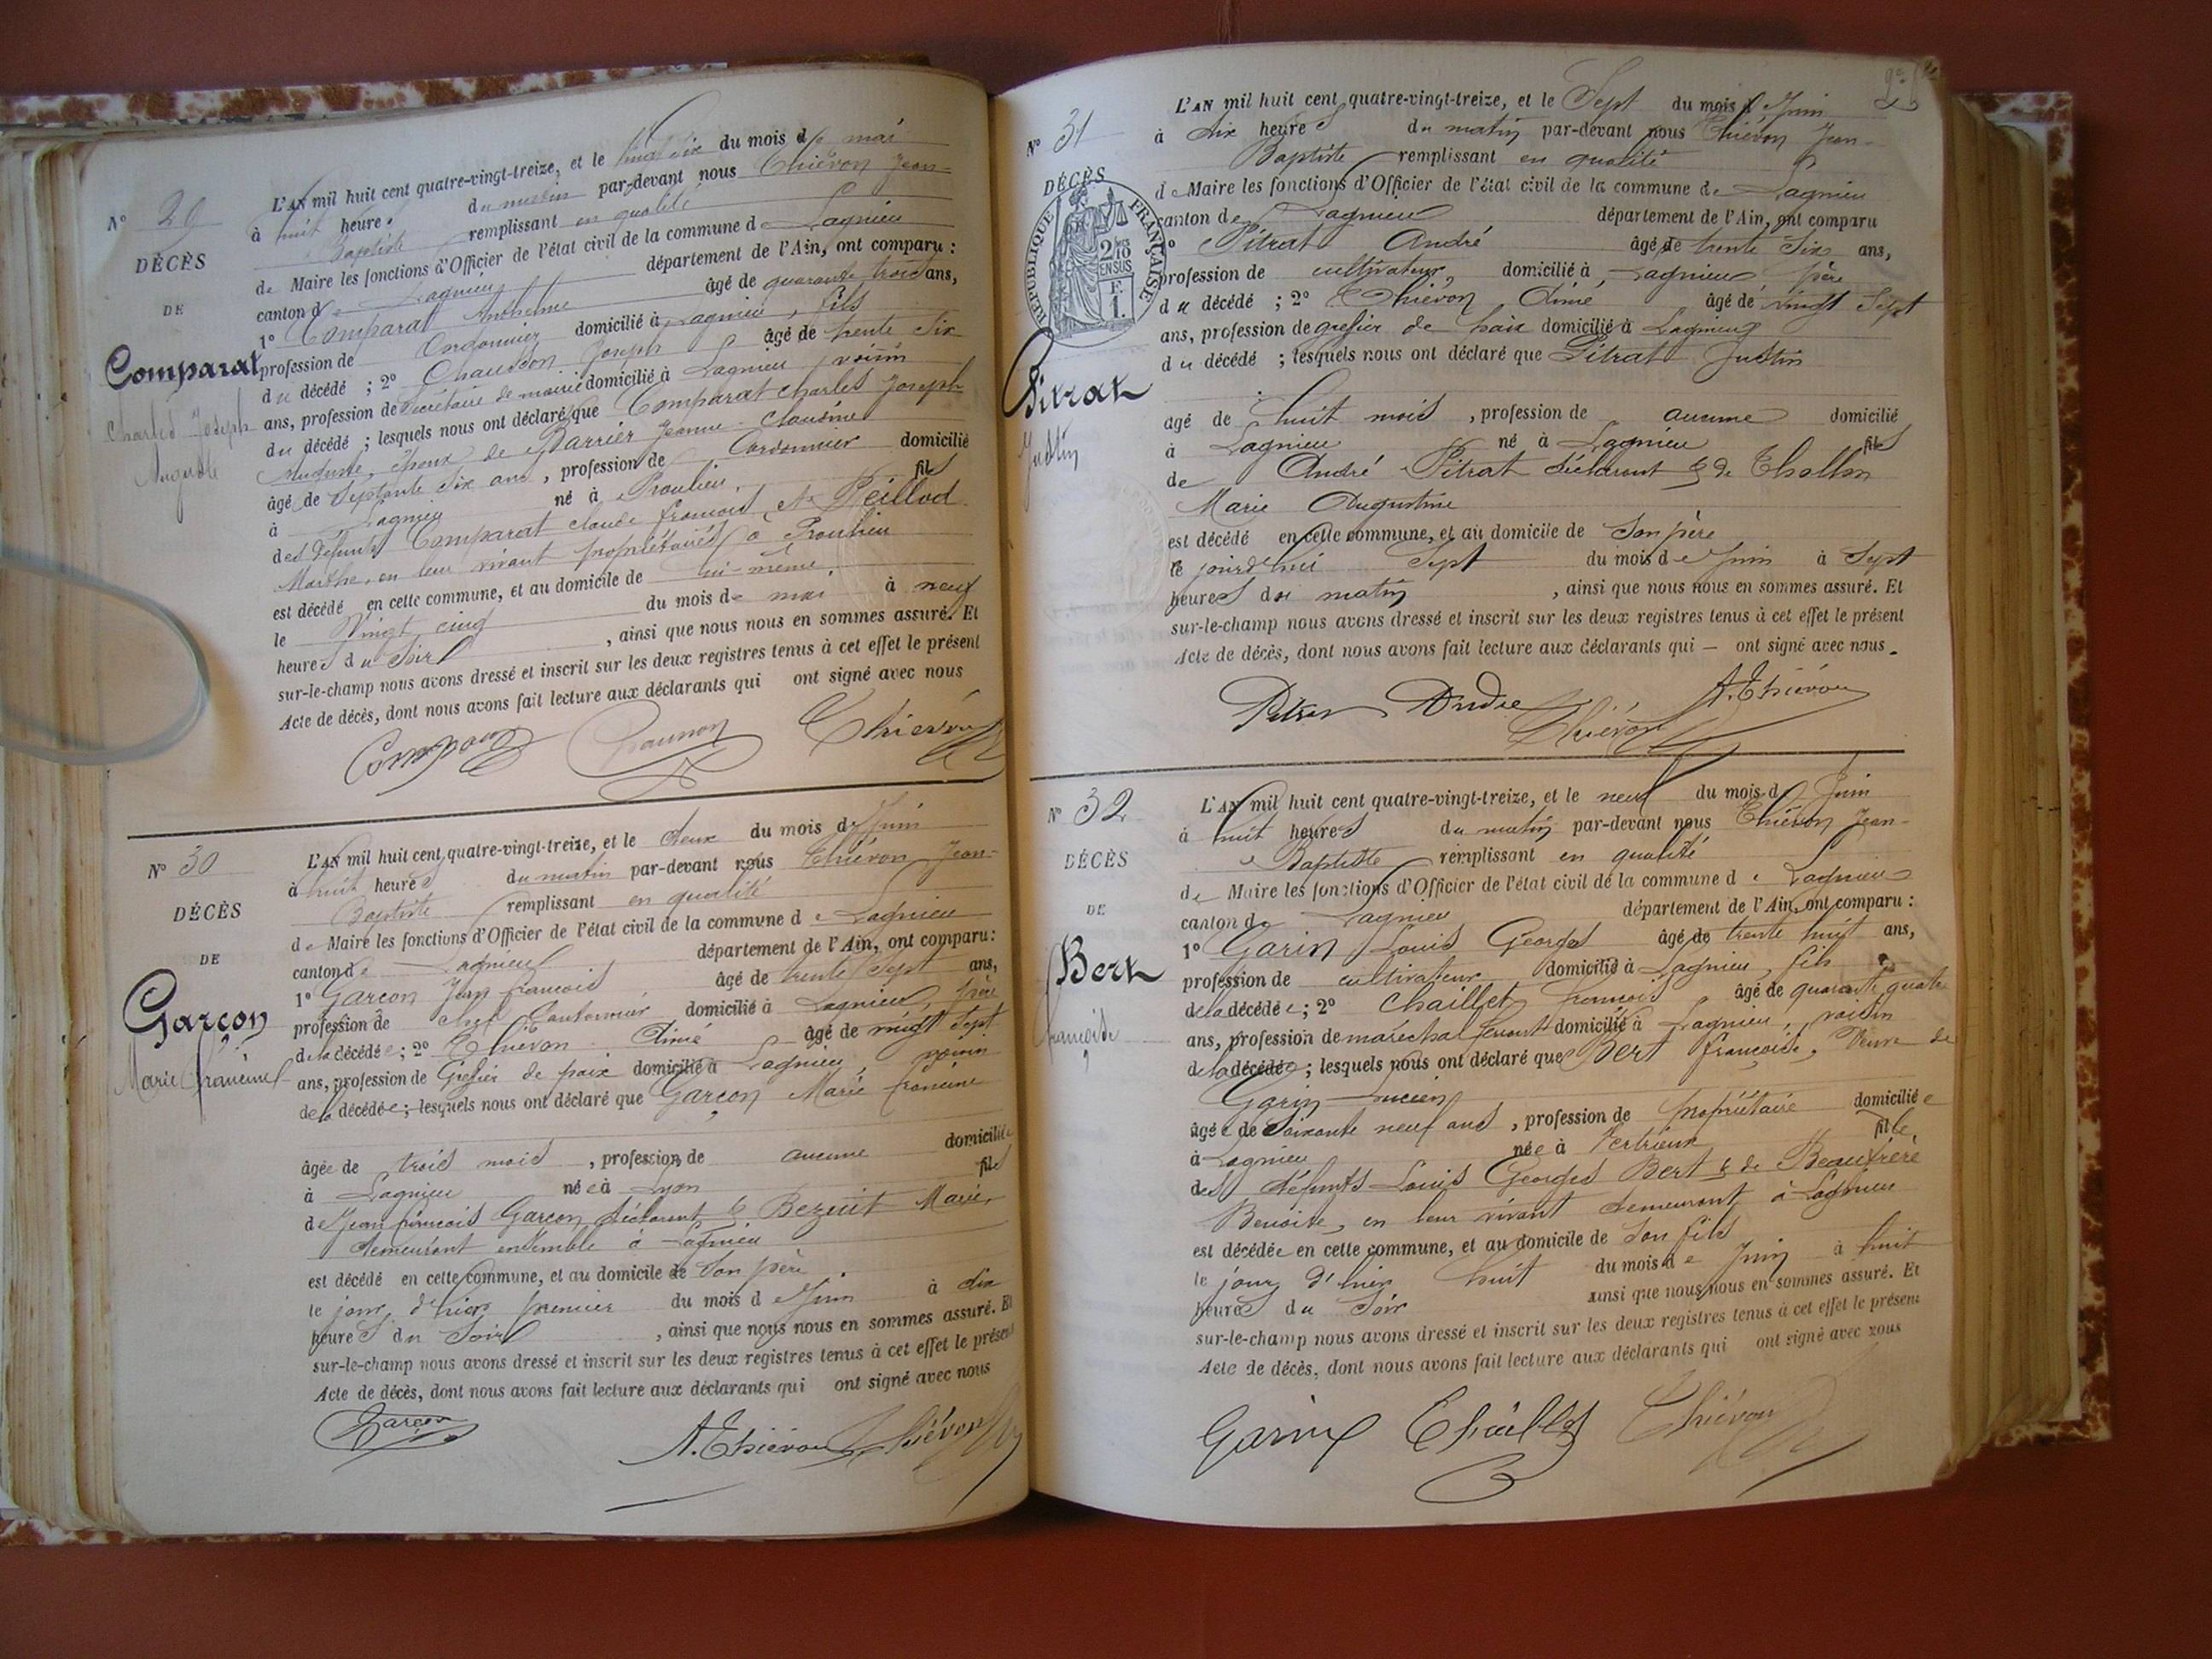 N° 29
DÉCÈS
DE
Comparat
Charles Joseph
Auguste
L'AN mil huit cent quatre-vingt-treize, et le vingt six du mois de mai
à huit heures du matin par-devant nous Thiévon Jean-
Baptiste remplissant en qualité
de Maire les fonctions d'Officier de l'état civil de la commune de Lagnieu
canton de Lagnieu département de l'Ain, ont comparu :
1° Comparat Anthelme âgé de quarante trois ans,
profession de Cordonnier domicilié à Lagnieu, fils
du décédé ; 2° Chausson Joseph âgé de trente six
ans, profession de Secrétaire de mairie domicilié à Lagnieu voisin
du décédé ; lesquels nous ont déclaré que Comparat Charles Joseph
Auguste, époux de Barrier Jeanne Claudine
âgé de Septante six ans, profession de Cordonnier domicilié
à Lagnieu né à Proulieu, fils
des défunts Comparat Claude François et Reillod
Marthe, en leur vivant propriétaires à Proulieu
est décédé en cette commune, et au domicile de lui-même,
le Vingt cinq du mois de mai à neuf
heures du Soir, ainsi que nous nous en sommes assuré. Et
sur-le-champ nous avons dressé et inscrit sur les deux registres tenus à cet effet le présent
Acte de décès, dont nous avons fait lecture aux déclarants qui ont signé avec nous
Comparat Chausson Thiévon
N° 30
DÉCÈS
DE
Garçon
Marie Francine
L'AN mil huit cent quatre-vingt-treize, et le deux du mois de Juin
à huit heures du matin par-devant nous Thiévon Jean-
Baptiste remplissant en qualité
de Maire les fonctions d'Officier de l'état civil de la commune de Lagnieu
canton de Lagnieu département de l'Ain, ont comparu :
1° Garçon Jean François âgé de trente Sept ans,
profession de chef Cantonnier domicilié à Lagnieu, père
de la décédée ; 2° Thiévon Aimé âgé de vingt Sept
ans, profession de Greffier de paix domicilié à Lagnieu, voisin
de la décédée ; lesquels nous ont déclaré que Garçon Marie Francine
âgée de trois mois, profession de aucune domiciliée
à Lagnieu née à Lyon fille
de Jean François Garçon déclarant & Bezuit Marie,
demeurant ensemble à Lagnieu
est décédé en cette commune, et au domicile de Son père
le jour d'hier premier du mois de Juin à dix
heures du Soir, ainsi que nous nous en sommes assuré. Et
sur-le-champ nous avons dressé et inscrit sur les deux registres tenus à cet effet le présent
Acte de décès, dont nous avons fait lecture aux déclarants qui ont signé avec nous
Garçon A. Thiévon Thiévon
N° 31
DÉCÈS
RÉPUBLIQUE FRANÇAISE
2/10
EN SUS
F.
1.
Pitrat
Justin
L'AN mil huit cent quatre-vingt-treize, et le Sept du mois de Juin
à dix heures du matin par-devant nous Thiévon Jean-
Baptiste remplissant en qualité
de Maire les fonctions d'Officier de l'état civil de la commune de Lagnieu
canton de Lagnieu département de l'Ain, ont comparu
1° Pitrat André âgé de trente Six ans,
profession de cultivateur, domicilié à Lagnieu, père
du décédé ; 2° Thiévon Aimé âgé de vingt Sept
ans, profession de greffier de paix domicilié à Lagnieu
du décédé ; lesquels nous ont déclaré que Pitrat Justin
agé de huit mois, profession de aucune domicilié
à Lagnieu né à Lagnieu fils
de André Pitrat déclarant & de Thollon
Marie Augustine
est décédé en cette commune, et au domicile de Son père
le jourd'hui Sept du mois de Juin à Sept
heures du matin, ainsi que nous nous en sommes assuré. Et
sur-le-champ nous avons dressé et inscrit sur les deux registres tenus à cet effet le présent
Acte de décès, dont nous avons fait lecture aux déclarants qui — ont signé avec nous.
Pitrat André Thiévon A. Thiévon
N° 32
DÉCÈS
DE
Bert
Françoise
L'AN mil huit cent quatre-vingt-treize, et le neuf du mois de Juin
à huit heures du matin par-devant nous Thiévon Jean-
Baptiste remplissant en qualité
de Maire les fonctions d'Officier de l'état civil de la commune de Lagnieu
canton de Lagnieu département de l'Ain, ont comparu :
1° Garin Louis Georges âgé de trente huit ans,
profession de cultivateur domicilié à Lagnieu, fils
de la décédée ; 2° Chaillet François âgé de quarante quatre
ans, profession de maréchal ferrant domicilié à Lagnieu, voisin
de la décédée ; lesquels nous ont déclaré que Bert Françoise, Veuve de
Garin Lucien
âgée de Soixante neuf ans, profession de propriétaire domiciliée
à Lagnieu née à Vertrieux fille,
des défunts Louis Georges Bert & de Beaufrère
Benoîte, en leur vivant demeurant à Lagnieu
est décédée en cette commune, et au domicile de Son fils
le jour d'hier huit du mois de Juin à huit
heures du Soir ainsi que nous nous en sommes assuré. Et
sur-le-champ nous avons dressé et inscrit sur les deux registres tenus à cet effet le présent
Acte de décès, dont nous avons fait lecture aux déclarants qui ont signé avec nous
Garin Chaillet Thiévon